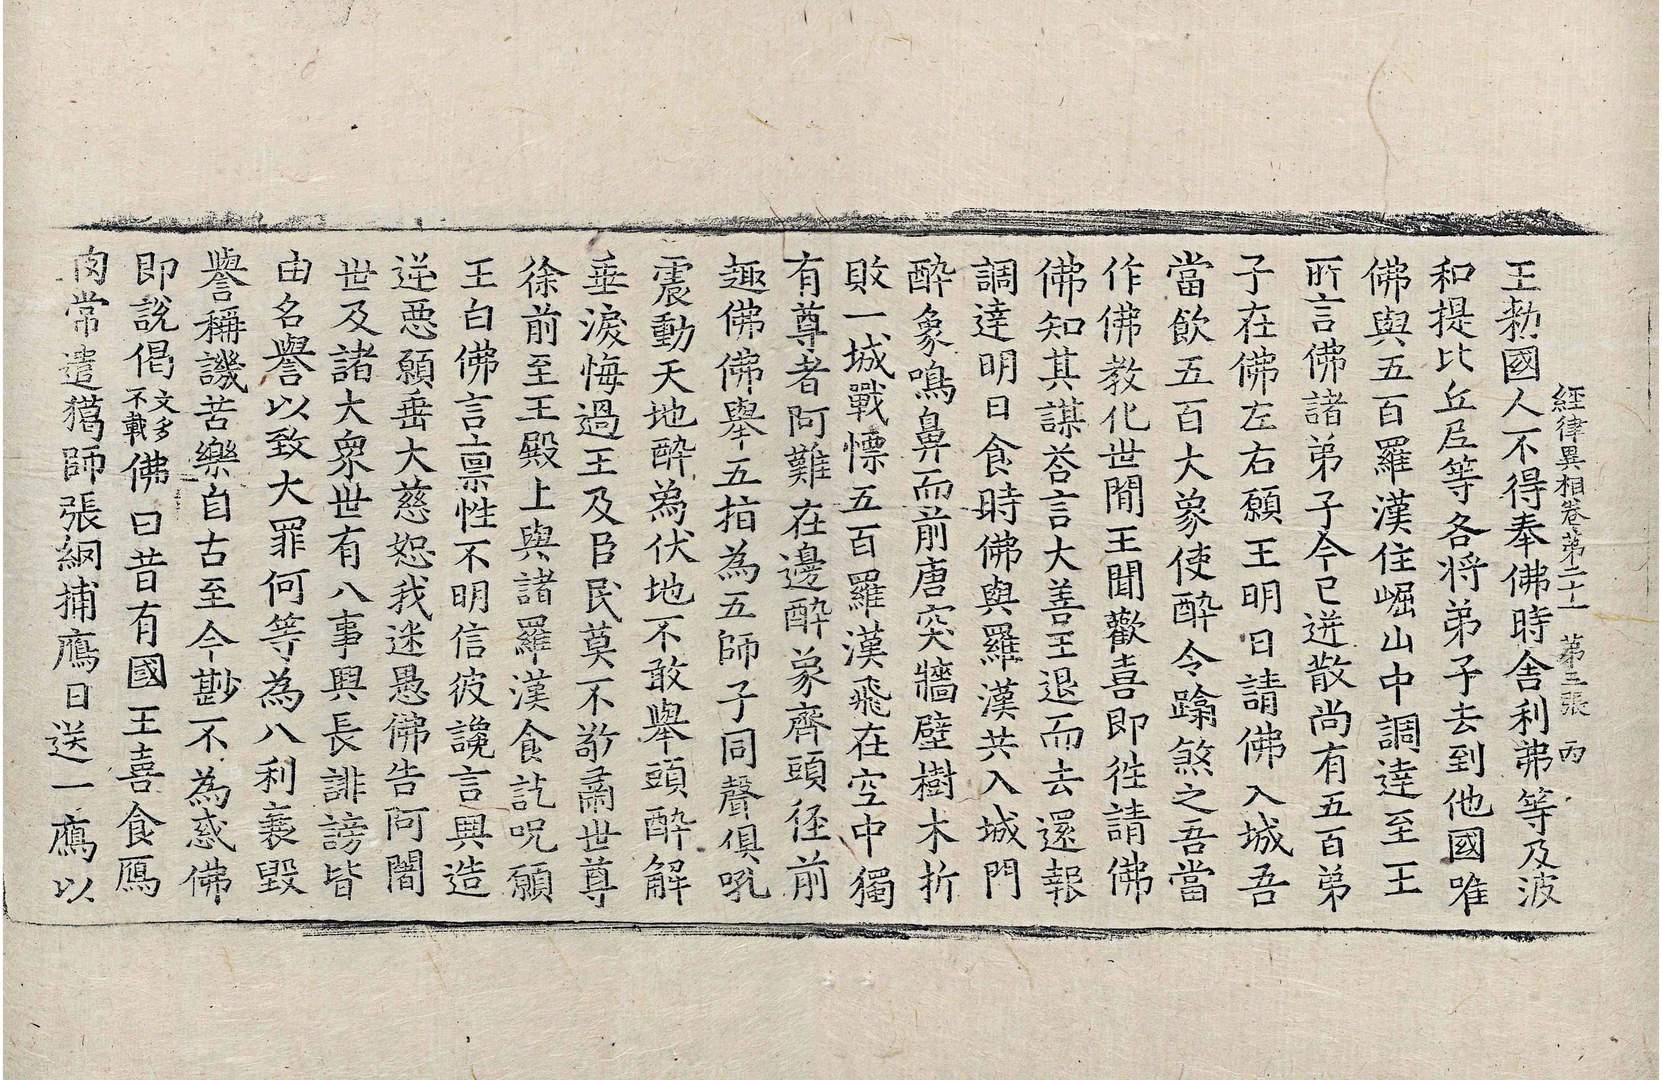 經律異相卷第二十一 第三張 丙
王勑國人不得奉佛時舍利弗等及波
和提比丘尼等各將弟子去到他國唯
佛與五百羅漢住崛山中調達至王
所言佛諸弟子今已迸散尚有五百弟
子在佛左右願王明日請佛入城吾
當飲五百大象使醉令蹹煞之吾當
作佛教化世間王聞歡喜即徃請佛
佛知其謀荅言大善王退而去還報
調達明日食時佛與羅漢共入城門
醉象鳴鼻而前唐突牆壁樹木折
敗一城戰慄五百羅漢飛在空中獨
有尊者阿難在邊醉象齊頭徑前
趣佛佛舉五指為五師子同聲俱吼
震動天地醉為伏地不敢舉頭醉解
垂淚悔過王及臣民莫不敬肅世尊
徐前至王殿上與諸羅漢食訖呪願
王白佛言稟性不明信彼讒言興造
逆惡願垂大慈恕我迷愚佛告阿闍
世及諸大衆世有八事興長誹謗皆
由名譽以致大罪何等為八利衰毀
譽稱譏苦樂自古至今尠不為惑佛
即說偈文多不載佛曰昔有國王喜食鴈
肉常遣獦師張網捕鴈日送一鴈以